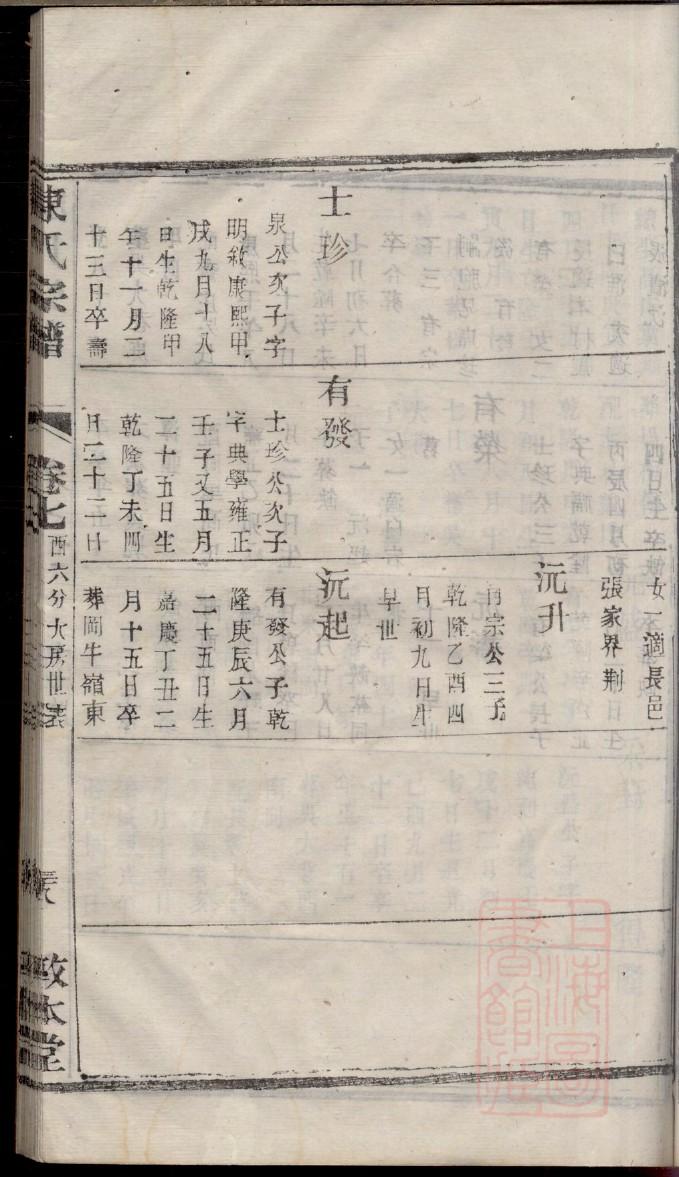 女一適長邑
張家界荆
沅升
有宗公三子
乾隆乙酉四
月初九日生
早世
士珍
泉公次子字
明敘康熙甲
戌九月十八
日生乾隆甲
午十一月二
十三日卒壽
有發
士珍公次子
字典學雍正
壬子又五月
二十五日生
乾隆丁未四
月二十二日
沅起
有發公子乾
隆庚辰六月
二十五日生
嘉慶丁丑二
月十五日卒
葬岡牛嶺東
陳氏宗譜
卷七
酉六分大房世
敦本堂
上海圖書館藏